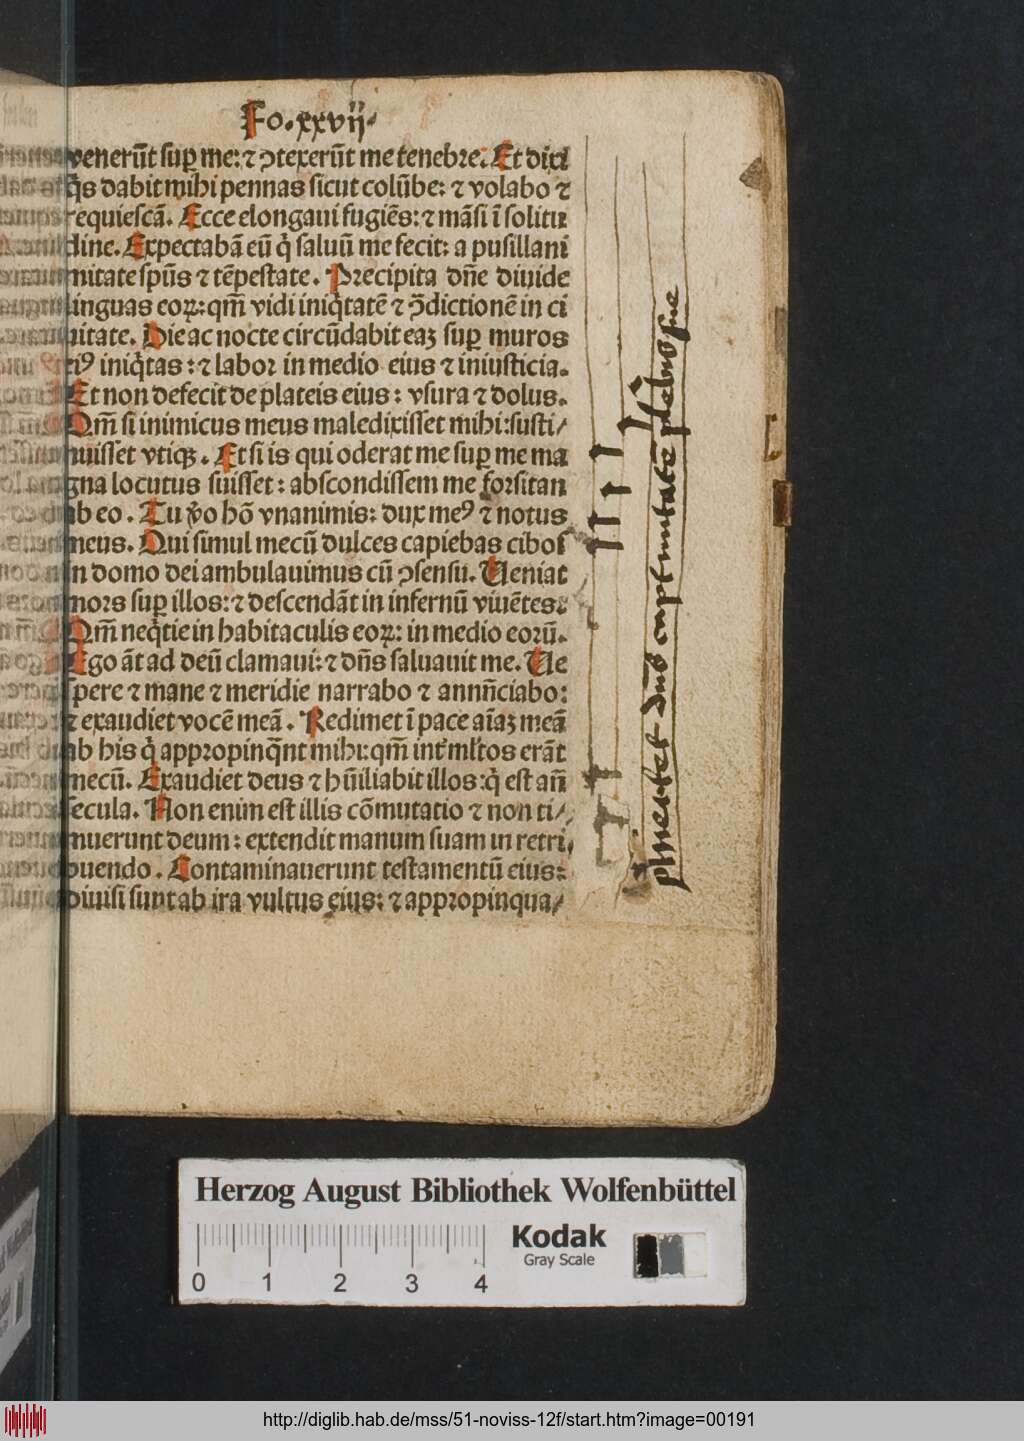 Fo.xxvij.
venerūt suꝑ me: ⁊ ꝯtexerūt me tenebre. Et dixi
q̇s dabit mihi pennas sicut colūbe: ⁊ volabo ⁊
requiescā. Ecce elongaui fugiēs: ⁊ māsi ī solitu
dine. Expectabā eū q̇ saluū me fecit: a pusillani
mitate spūs ⁊ tēpestate. Precipita dn̄e diuide
linguas eoꝝ: qm̄ vidi iniq̇tatē ⁊ ꝯ̄dictionē in ci
uitate. Die ac nocte circūdabit eaꝫ suꝑ muros
eiꝰ iniq̇tas: ⁊ labor in medio eius ⁊ iniusticia.
Et non defecit de plateis eius: vsura ⁊ dolus.
Qm̄ si inimicus meus maledixisset mihi: susti/
nuisset vtiqꝫ. Et si is qui oderat me suꝑ me ma
gna locutus fuisset: abscondissem me forsitan
ab eo. Tu v̊o hō vnanimis: dux meꝰ ⁊ notus
meus. Qui simul mecū dulces capiebas cibos
in domo dei ambulauimus cū ꝯsensu. Veniat
mors suꝑ illos: ⁊ descendāt in infernū viuētes.
Qm̄ neq̇tie in habitaculis eoꝝ: in medio eorū.
Ego āt ad deū clamaui: ⁊ dn̄s saluauit me. Ve
spere ⁊ mane ⁊ meridie narrabo ⁊ annūciabo:
⁊ exaudiet vocē meā. Redimet ī pace aīaꝫ meā
ab his q̇ appropinq̄nt mihi: qm̄ int̉ ml̄tos erāt
mecū. Exaudiet deus ⁊ hūiliabit illos: q̇ est an̄
secula. Non enim est illis cōmutatio ⁊ non ti/
muerunt deum: extendit manum suam in retri
buendo. Contaminauerunt testamentū eius:
diuisi sunt ab ira vultus eius: ⁊ appropinqua/
dn̄s captiuitatē plebis sue
Herzog August Bibliothek Wolfenbüttel
Kodak
Gray Scale
0 1 2 3 4
http://diglib.hab.de/mss/51-noviss-12f/start.htm?image=00191